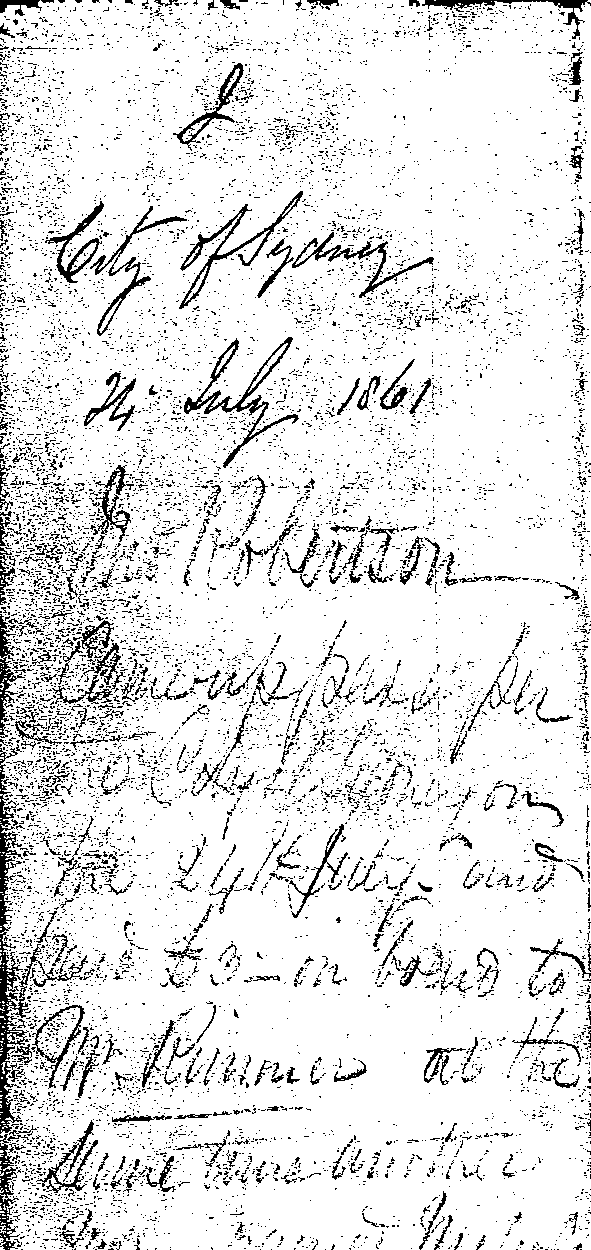 J
City of Sydney
24 July 1861
Robertson
Came up passr per
City of Sydney on
the 24th July and
paid £3 — on board to
Mr. Rimmer at the
same time another
named